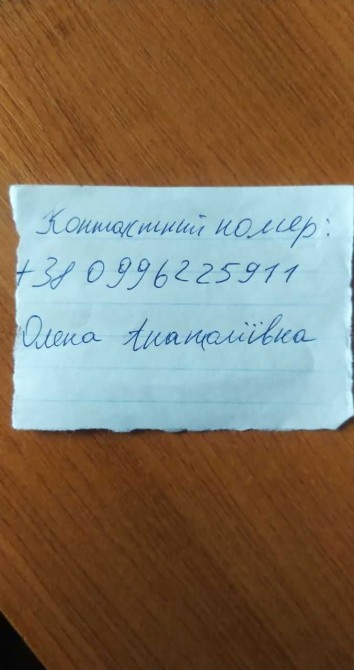 Контактний номер:
+38 0996225911
Олена Анатоліївна